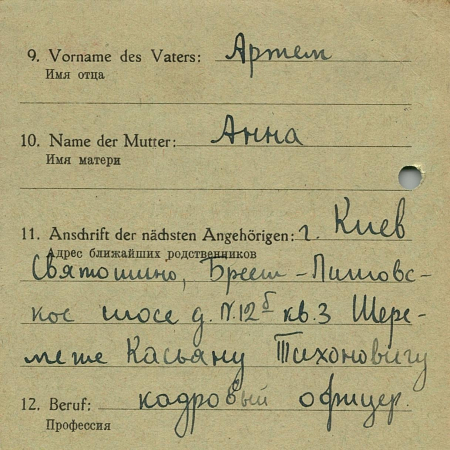 9. Vorname des Vaters: Артем
Имя отца
10. Name der Mutter: Анна
Имя матери
11. Anschrift der nächsten Angehörigen: г. Киев
Адрес ближайших родственников
Святошино, Брест-Литовс-
кое шосе д. N.12б кв.3 Шере-
мете Касьяну Тихоновичу
12. Beruf: кадровый офицер.
Профессия